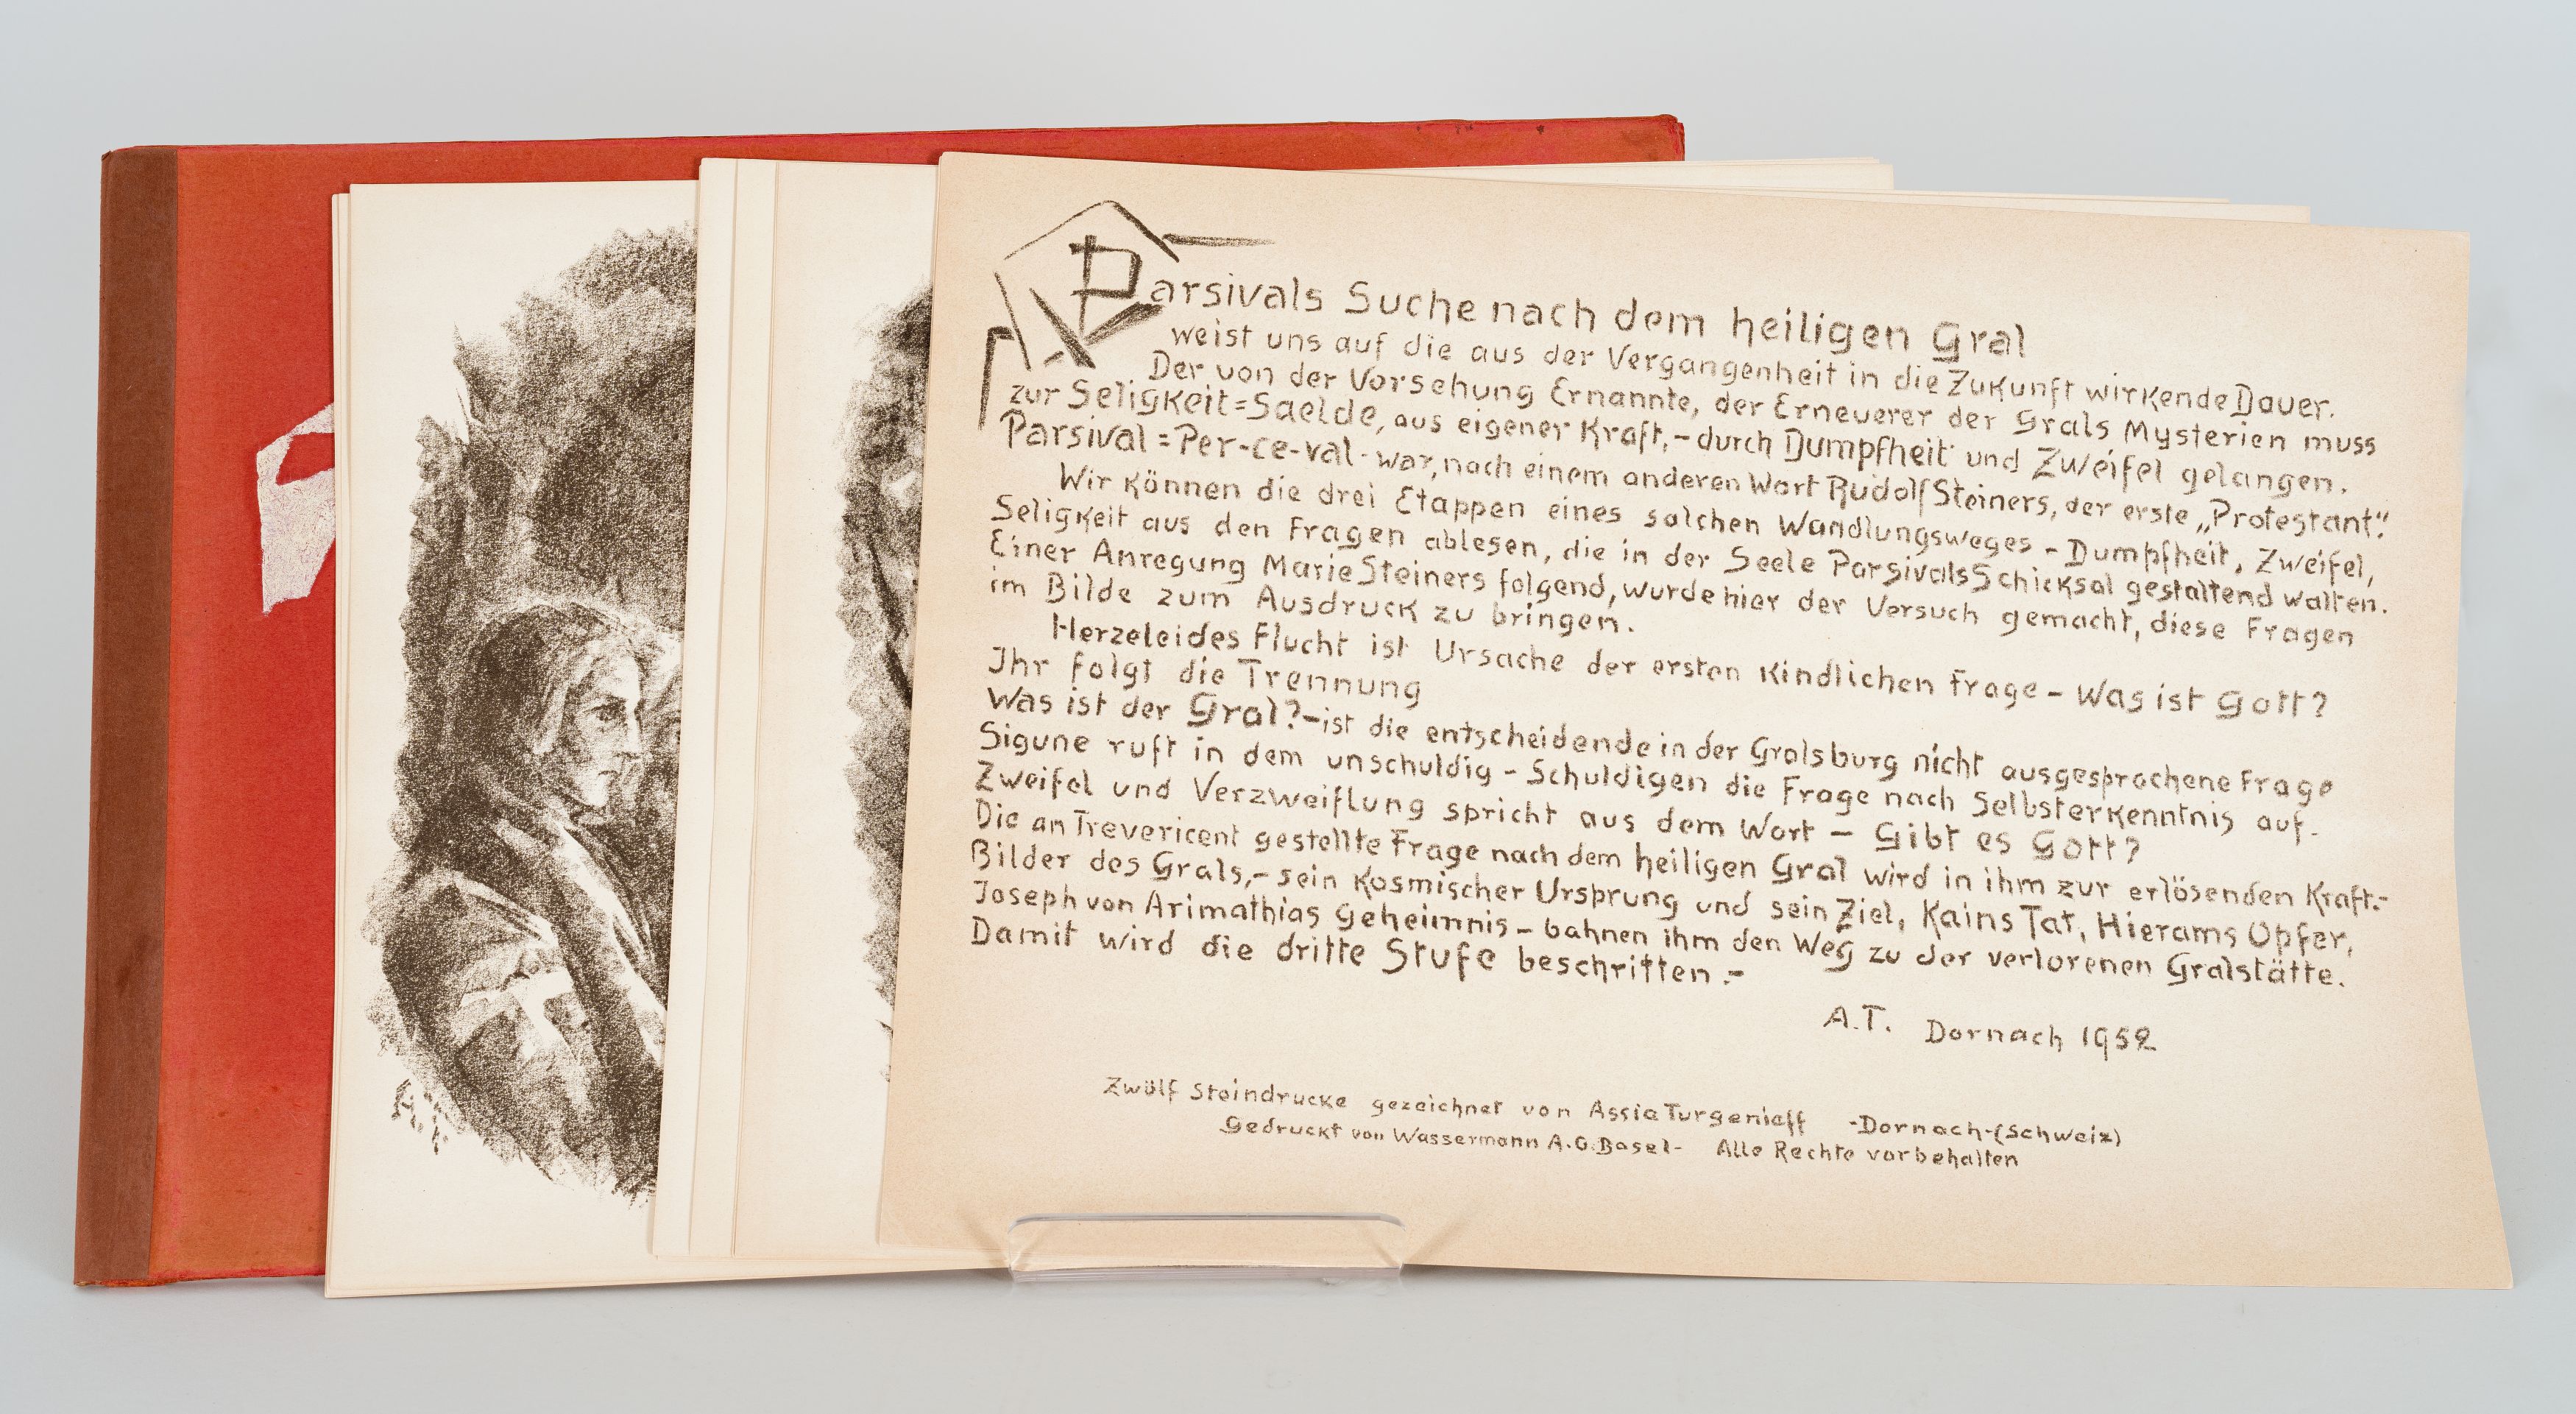 Parsivals Suche nach dem heiligen Gral
weist uns auf die aus der Vergangenheit in die Zukunft wirkende Dauer.
Der von der Vorsehung Ernannte, der Erneuerer der Grals Mysterien muss
zur Seligkeit=Saelde, aus eigener Kraft,- durch Dumpfheit und Zweifel gelangen.
Parsival = Per-ce-val - war, nach einem anderen Wort Rudolf Steiners, der erste „Protestant“.
Wir können die drei Etappen eines solchen Wandlungsweges - Dumpfheit, Zweifel,
Seligkeit aus den Fragen ablesen, die in der Seele Parsivals Schicksal gestaltend walten.
Einer Anregung Marie Steiners folgend, wurde hier der Versuch gemacht, diese Fragen
im Bilde zum Ausdruck zu bringen.
Herzeleides Flucht ist Ursache der ersten kindlichen Frage - Was ist Gott?
Ihr folgt die Trennung
Was ist der Gral? - ist die entscheidende in der Gralsburg nicht ausgesprochene Frage
Sigune ruft in dem unschuldig - Schuldigen die Frage nach Selbsterkenntnis auf.
Zweifel und Verzweiflung spricht aus dem Wort - Gibt es Gott?
Die an Trevericent gestellte Frage nach dem heiligen Gral wird in ihm zur erlösenden Kraft.-
Bilder des Grals,- sein kosmischer Ursprung und sein Ziel, Kains Tat, Hierams Opfer,
Joseph von Arimathias Geheimnis - bahnen ihm den Weg zu der verlorenen Gralstätte.
Damit wird die dritte Stufe beschritten.-
A.T. Dornach 1952
Zwölf Steindrucke gezeichnet von Assia Turgenieff -Dornach-(Schweiz)
Gedruckt von Wassermann A.G. Basel- Alle Rechte vorbehalten